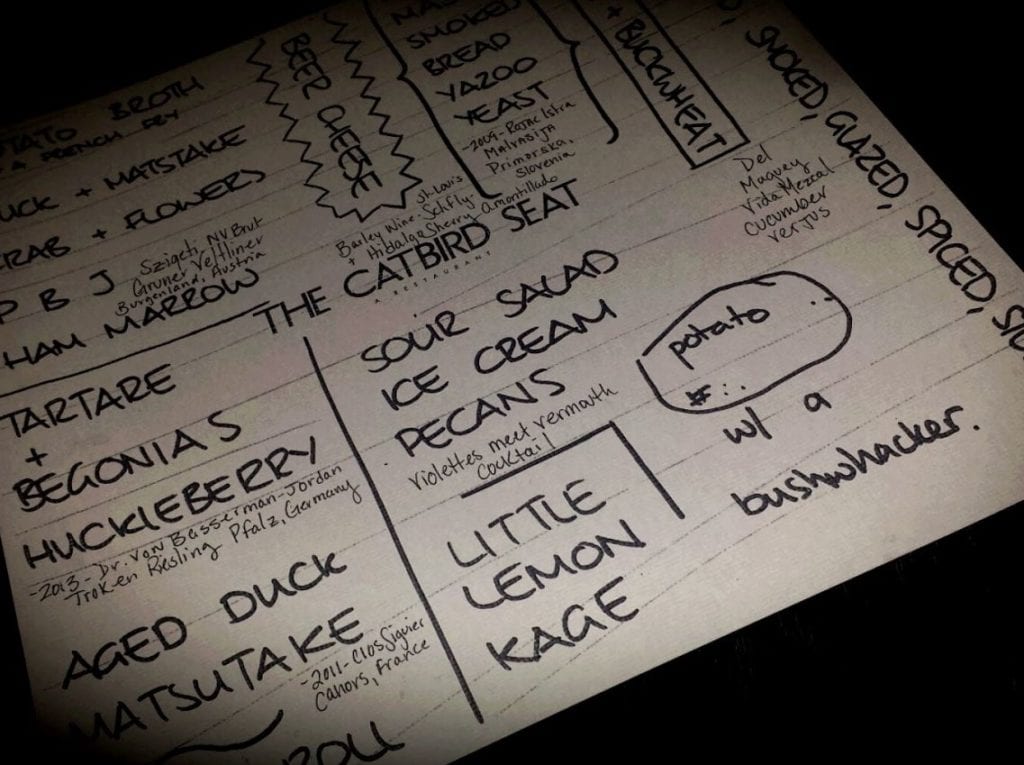 BROTH
A FRENCH FRY
+ MATSTAKE
+ FLOWERS
P B J
Szigeti, NV Brut
Gruner Veltliner
Burgenland, Austria
HAM MARROW
BEER CHEESE
SMOKED
BREAD
YAZOO
YEAST
-2009- ROJAC Istra
Malvasija
Primorska,
Slovenia
St. Louis
Barley Wine - Schlfly
+ Hidalgo Sherry - Amontillado
+ BUCKWHEAT
Del
Maguey
Vida Mezcal
Cucumber
verjus
SMOKED, GLAZED, SPICED,
THE CATBIRD SEAT
A RESTAURANT
TARTARE
+
BEGONIAS
HUCKLEBERRY
-2013- Dr. Von Basserman-Jordan
Trok-en Riesling Pfalz, Germany
AGED DUCK
MATSUTAKE
-2011- Clos Siguier
Cahors, France
SOUR SALAD
ICE CREAM
PECANS
violettes meet vermouth
Cocktail
LITTLE
LEMON
KAGE
potato
#:.
w/ a
bushwhacker.